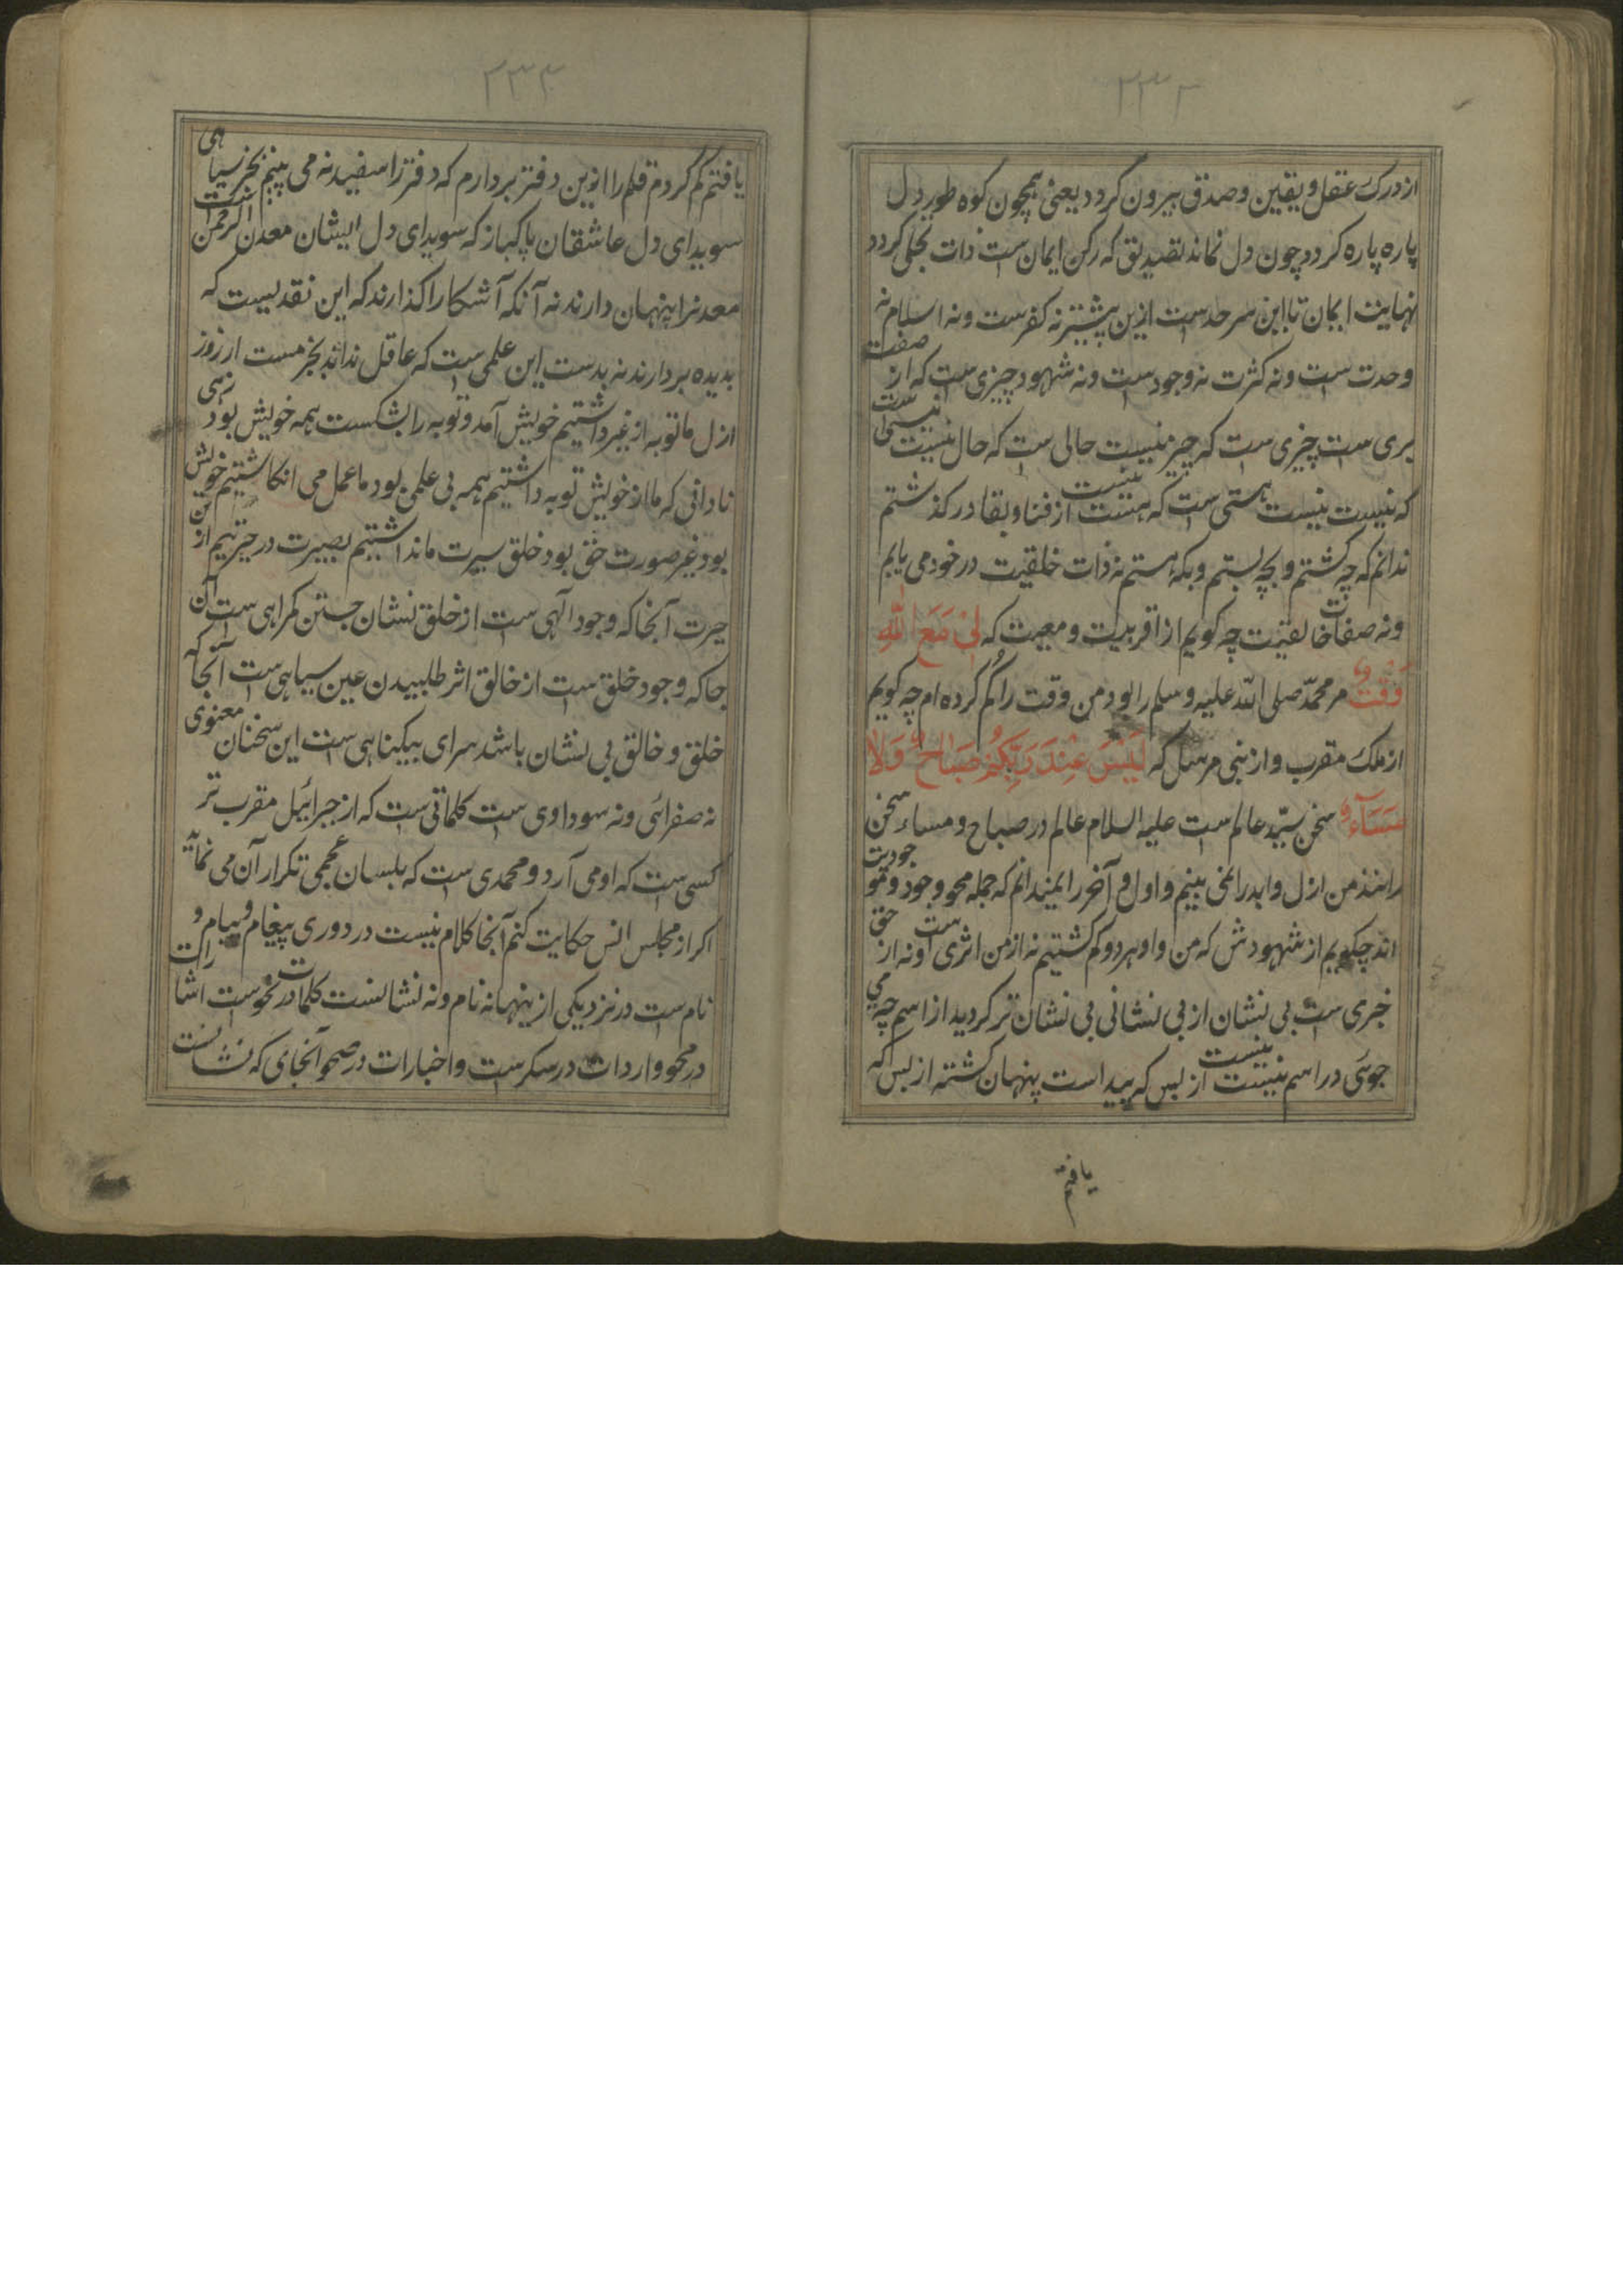 ۲۳۲
از درک عقل و یقین و صدق بیرون کردد یعنی همچون کوه طور دل
پاره پاره کردد چون دل نماند تصدیق که رکن ایمان ست ذات تجلی کردد
نهایت ایمان تا این سر حدست ازین پیشتر نه کفرست و نه اسلام نه
وحدت ست و نه کثرت نه وجودست و نه شهود چیزی ست که از صفت
بری ست چیزی ست که چیز نیست حالی ست که حال نیست نیستی است
که نیست نیست هستی ست که هست نیست از فنا و بقا در کذشتم
ندانم که چه کشتم و بچه بستم و بکه هستم نه ذات خلقیت در خود می یابم
و نه صفات خالقیت چه کویم از اقربیت و معیت که لِیْ مَعَ اللّٰهِ
وَقْتٌ مر محمّد صلی اللّه علیه وسلم را بود من وقت را کُم کرده ام چه کویم
از ملک مقرب و از نبی مرسل که لَیْسَ عِنْدَ رَبِّکُمْ صَبَاحٌ وَلَا
مَسَآءٌ سخن سیّد عالم ست علیه السلام عالم در صباح و مساء سخن
رانند من ازل و ابد را نمی بینم و اول و آخر را نمیدانم که جمله محو وجود و موجودیت
اند چکویم از شهودش که من و او هر دو کم کشتیم نه از من اثری است و نه از حق
خبری ست بی نشان از بی نشانی بی نشان تر کردید از اسم چه می
جوئی در اسم نیست نیست از بس که پیداست پنهان کشته از بس که
یافتم
۲۳۳
یافتم کم کردم قلم را ازین دفتر بردارم که دفتر را سفید نه می بینم بجز سیاهی
سویدای دل عاشقان پاکباز که سویدای دل ایشان معدن الرحمن است
معدنرا پنهان دارند نه آنکه آشکارا کذارند که این نقدیست که
بدیده بردارند نه بدست این علمی ست که عاقل نداند بجز مست از روز
ازل ما توبه از غیر داشتیم خویش آمد و توبه را بشکست همه خویش بود زهی
نادانی که ما از خویش توبه داشتیم همه بی علمی بود ما عمل می انکاشتیم خویش
بود غیر صورت حق بود خلق سیرت ما نداشتیم بصیرت در حیرتیم از
حیرت آنجا که وجود الهی ست از خلق نشان جستن کمراهی ست آن
جا که وجود خلق ست از خالق اثر طلبیدن عین سیاهی ست آنجا که
خلق و خالق بی نشان باشد سرای بیکناهی ست این سخنان معنوی
نه صفرائی و نه سوداوی ست کلماتی ست که از جبرائیل مقرب تر
کسی ست که او می آرد و محمدی ست که بلسان عجمی تکرار آن می نماید
اکر از مجلس انس حکایت کنم آنجا کلام نیست در دوری پیغام و پیام و
نام ست در نزدیکی ازینها نه نام و نه نشانست کلمات در نحوست اشارات
در محو واردات در سکرست و اخبارات در صحو آنجای که نشانست